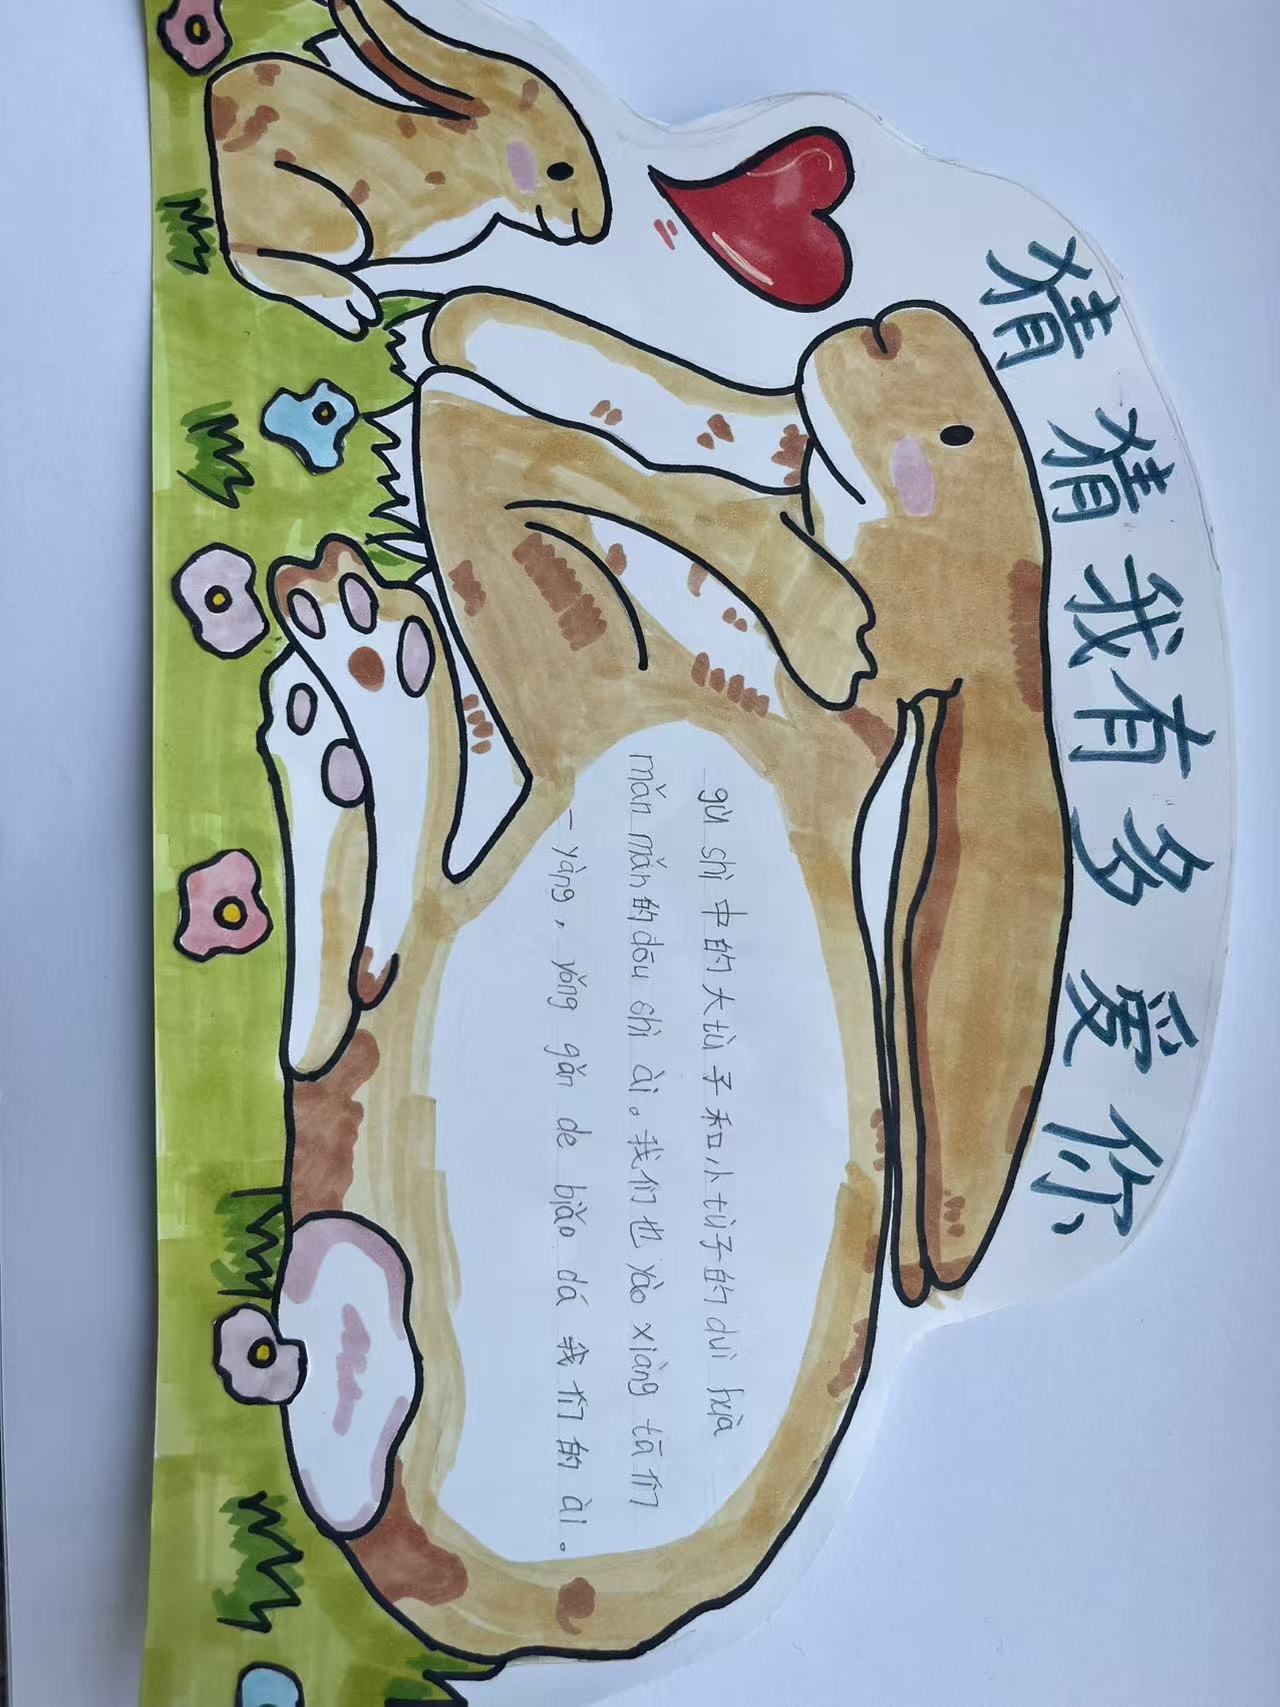 猜猜我有多爱你
gù shì 中的大tù子和小tù子的duì huà
mǎn mǎn的dōu shì ài。我们也yào xiàng tā们
一yàng，yǒng gǎn de biǎo dá 我们的ài。